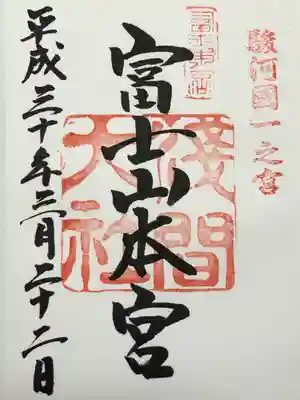 駿河國一之宮
富士山本宮
淺間
大社
平成三十年三月二十二日